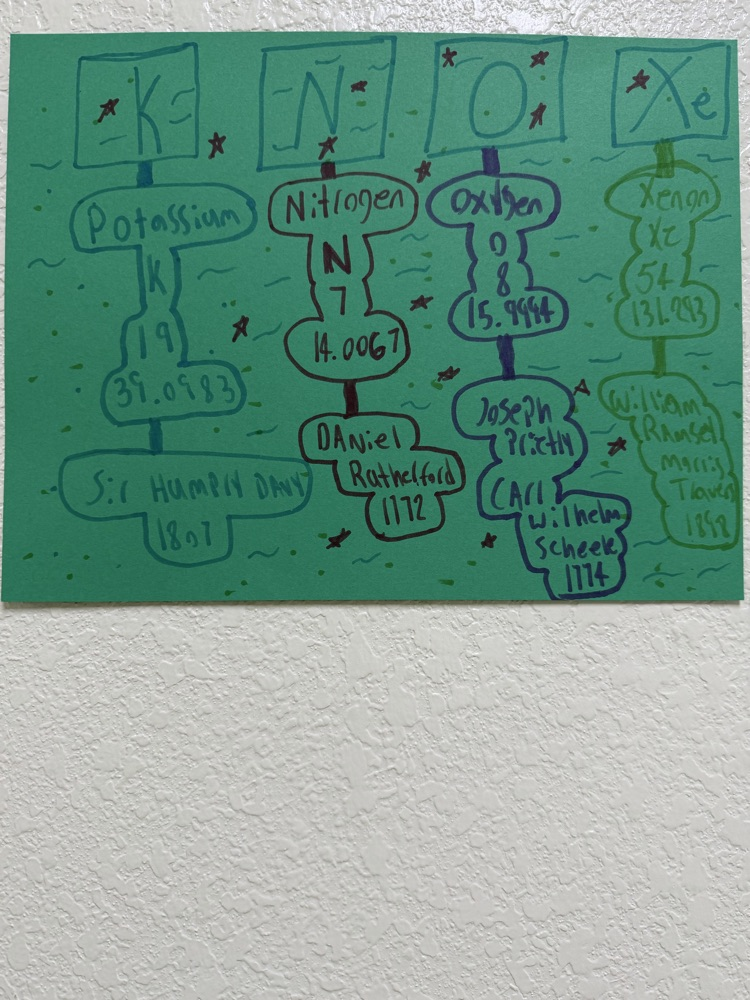 K
Potassium
K
19
39.0983
Sir Humpry Davy
1807
N
Nitrogen
N
7
14.0067
DANiel
Rutherford
1772
O
Oxygen
O
8
15.9994
Joseph
Prictly
CArl
Wilhelm
Scheele
1774
Xe
Xenon
Xe
54
131.293
William
Ramsey
Morris
Travers
1898